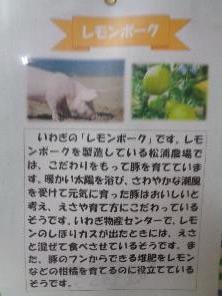 レモンポーク
いわぎの「レモンポーク」です。レモ
ンポークを製造している松浦農場で
は、こだわりをもって豚を育てていま
す。暖かい太陽を浴び、さわやかな潮風
を受けて元気に育った豚はおいしいと
考え、えさや育て方にこだわっている
そうです。いわぎ物産センターで、レモ
ンのしぼりカスが出たときには、えさ
と混ぜて食べさせているそうです。ま
た、豚のフンからできる堆肥をレモン
などの柑橘を育てるのに役立てている
そうです。